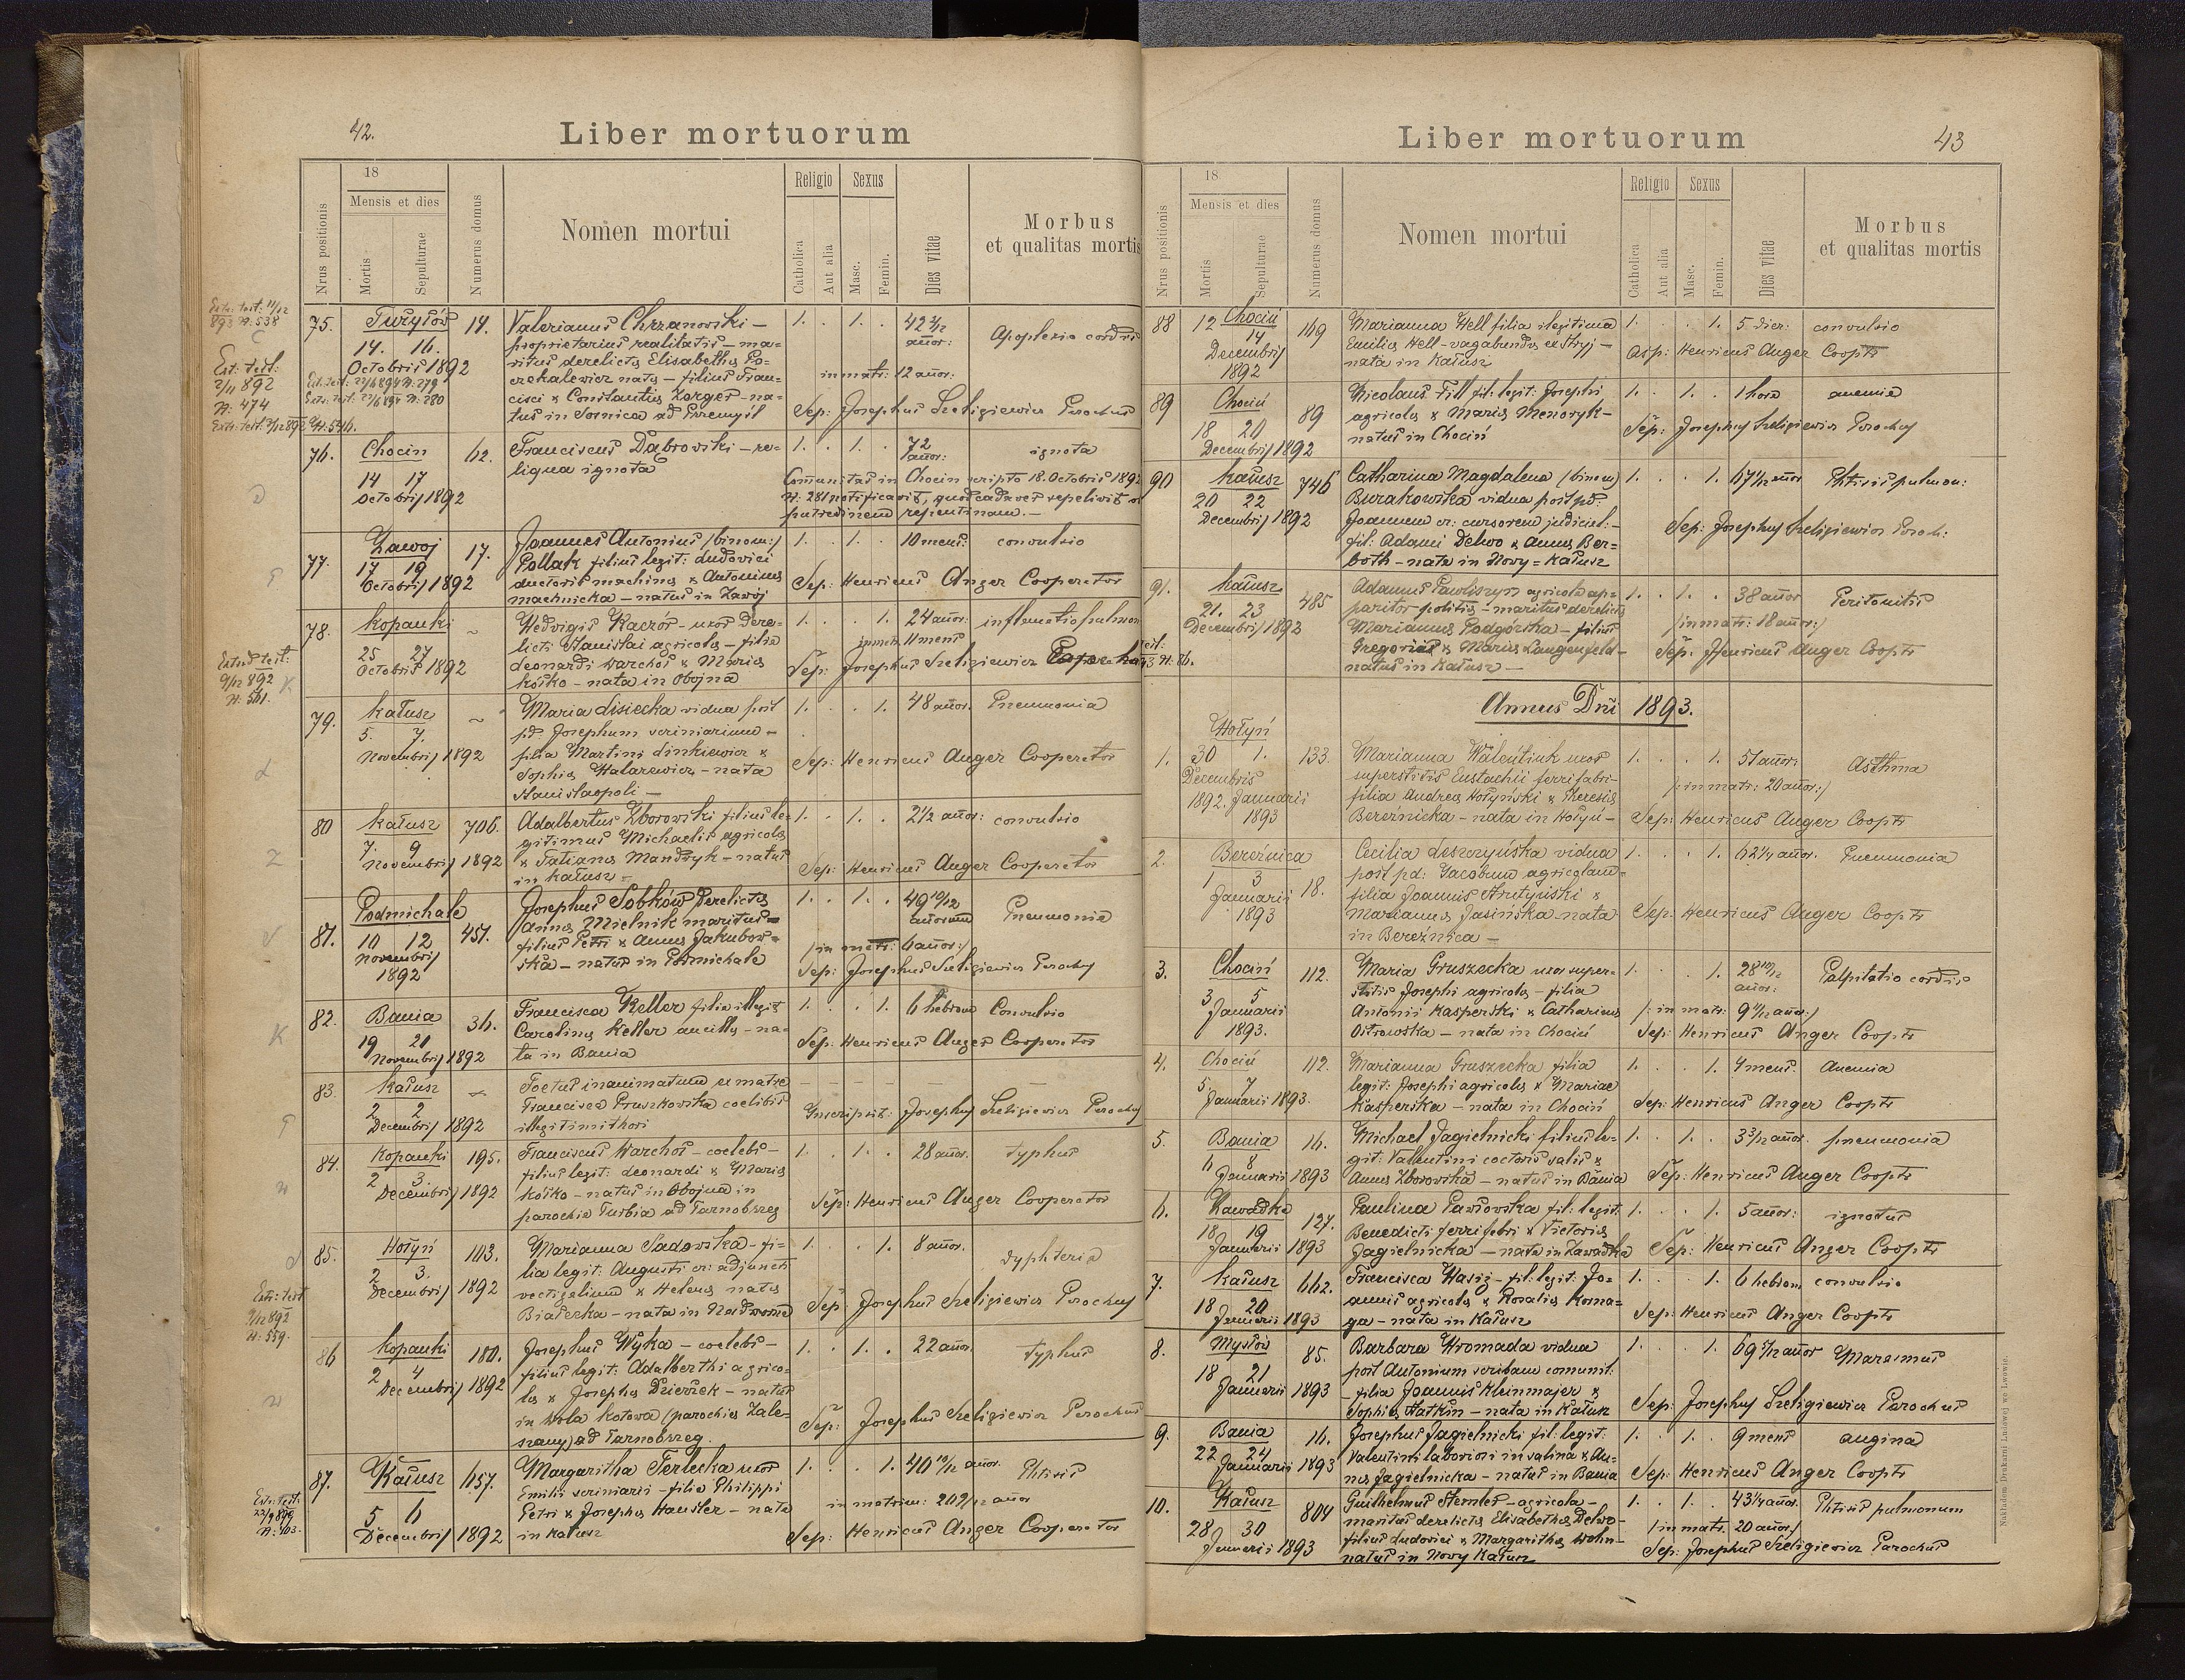 42.
Liber mortuorum
Nrus positionis
18
Mensis et dies
Mortis
Sepulturae
Numerus domus
Nomen mortui
Religio
Catholica
Aut alia
Sexus
Masc.
Femin.
Dies vitae
Morbus
et qualitas mortis
75. Turyłów 14. Valerianus Chrzanowski –
14. 16. proprietarius realitatis – ma-
Octobris 1892 ritus derelictus Elisabethae
natus – filius Fran-
cisci & Constantiae Zarges – na-
tus in Sośnica ad Przemyśl
1. . 1. . 42 añor: Apoplexio cordis
in matr: 12 añor:
Sep: Josephus Szeligiewicz Parochus
76. Chocin 62. Franciscus Dąbrowski – re-
14 17 liqua ignota
Octobris 1892
1. . 1. . 72 añor: ignota
Comunitas in Chocin scripto 18. Octobris 1892
N: 281 notificavit, quod cadaver sepelivit ob
putredinem repentinam. –
77. Zawoj 17. Joannes Antonius (binom:)
17 19 Pollak filius legit: Ludovici
Octobris 1892 ductoris machinae & Antoninae
Machnicka – natus in Zawoj
1. . 1. . 10 mens: convulsio
Sep: Henricus Anger Cooperator
78. Kopanki ~ Hedvigis Kaczór – uxor dere-
25 27 licti Stanislai agricolae – filia
Octobris 1892 Leonardi Warchoł & Mariae
Kośko – nata in Obojna
1. . . 1. 24 añor: inflamatio pulmon
in matr. 11 mens
Sep: Josephus Szeligiewicz
79. Kałusz ~ Maria Lisiecka vidua post
5. 7. pd Josephum scriniarium –
Novembris 1892 filia Martini Linkiewicz &
Sophiae – nata
Stanislaopoli –
1. . . 1. 48 añor. Pneumonia
Sep: Henricus Anger Cooperator
80 Kałusz 706. Adalbertus Zborowski filius le-
7. 9 gitimus Michaelis agricolae
Novembris 1892 & Tatianae Mandryk – natus
in Kałusz –
1. . 1. . 2 1/2 añor: convulsio
Sep: Henricus Anger Cooperator
81. Podmichale 457. Josephus Sobków derelictae
10 12 Annae Mielnik maritus –
Novembris filius Petri & Annae Jakubow-
1892 ska – natus in Podmichale
1. . 1. . 49 10/12 añorum Pneumonia
(in matr: 6 añor:)
Sep: Josephus Szeligiewicz Parochus
82. Bania 36. Francisca Keller filia illegit
19 21 Carolinae Keller ancillae – na-
Novembris 1892 ta in Bania
1. . . 1. 6 hebdom Convulsio
Sep: Henricus Anger Cooperator
83. Kałusz ~ Foetus inanimatus ex matre
2 2 Francisca Pruszkowska coelibis
Decembris 1892 illegitimi thori
Inscripsit: Josephus Szeligiewicz Parochus
84. Kopanki 195. Franciscus Warchoł – coelebs –
2 3. filius legit: Leonardi & Mariae
Decembris 1892 Kośko – natus in Obojna in
parochia Turbia ad Tarnobrzeg
1. . 1. . 28 añor. typhus
Sep: Henricus Anger Cooperator
85. Hołyń 103. Marianna Sadowska – fi-
2 3. lia legit: Augusti cr: adjuncti
Decembris 1892 vectigalium & Helenae natae
Białecka – nata in Nadworna
1. . . 1. 8 añor. Dyphteria
Sep: Josephus Szeligiewicz Parochus
86 Kopanki 180. Josephus Wyka – coelebs –
2 4 filius legit: Adalberthi agrico-
Decembris 1892 lae & Josephae Dzierżek – natus
in Wola Kotowa (parochiae Zale-
szany) ad Tarnobrzeg.
1. . 1. . 22 añor. typhus
Sep: Josephus Szeligiewicz Parochus
87. Kałusz 657. Margaritha Terlecka uxor
5 6 Emilii scriniarii – filia Philippi
Decembris 1892 Petri & Josephae Hausler – nata
in Kałusz
1. . . 1. 40 10/12 añor. Phtisis
in matrim: 20 9/12 añor
Sep: Henricus Anger Cooperator
Extr: test: 11/12
893 N: 538
Ext: test:
2/11 892
N: 474
Extr: test.
9/12 892
N: 561.
Extr: test
9/12 892
N: 559.
43
Liber mortuorum
Nrus positionis
18
Mensis et dies
Mortis
Sepulturae
Numerus domus
Nomen mortui
Religio
Catholica
Aut alia
Sexus
Masc.
Femin.
Dies vitae
Morbus
et qualitas mortis
88 Chociń 169 Marianna Hell filia illegitima
12 14 Emiliae Hell – vagabundae ex Stryj –
Decembris nata in Kałusz
1892
1. . . 1. 5 dier: convulsio
Henricus Anger Cooptr
89 Chociń 89 Nicolaus Fill fil: legit: Josephi
18 20 agricolae & Mariae Menoryk –
Decembris 1892 natus in Chociń
1. . 1. . 1 hora anemia
Sep: Josephus Szeligiewicz Parochus
90 Kałusz 746 Catharina Magdalena (binom)
20 22 Burakowska vidua post pd:
Decembris 1892 Joannem cr: cursorem judicial: –
fil: Adami Delwo & Annae Ber-
both – nata in Nowy-Kałusz
1. . . 1. 67 1/12 añor Phtisis pulmon:
Sep: Josephus Szeligiewicz Paroch:
91. Kałusz 485 Adamus Pawliszyn agricola ap-
21. 23 paritor politic – maritus derelictae
Decembris 1892 Mariannae Podgórska – filius
Gregorii & Mariae Langenfeld –
natus in Kałusz –
1. . 1. . 38 añor Peritonitis
(in matr: 18 añor:)
Sep: Henricus Anger Cooptr
Annus Dñi 1893.
1. Hołyń 133. Marianna Walentiuk uxor
30 1. superstitis Eustachii ferrifabri –
Decembris filia Andreae Hołyński & Theresiae
1892. Januarii Bereźnicka – nata in Hołyń –
1893
1. . . 1. 51 añor: Asthma
(: in matr: 20 añor:)
Sep: Henricus Anger Cooptr
2. Bereźnica 18. Cecilia Leszczyńska vidua
1 3 post pd: Jacobum agricolam –
Januarii filia Joannis Strutyński &
1893 Mariannae Jasińska – nata
in Bereźnica –
1. . . 1. 62 1/4 añor. Pneumonia
Sep: Henricus Anger Cooptr
3. Chociń 112. Maria Gruszecka uxor super-
3 5 stitis Josephi agricolae – filia
Januarii Antonii Kasperski & Catharinae
1893. Ostrowska – nata in Chociń
1. . . 1. 28 10/12 añor: Palpitatio cordis
(: in matr: 9 11/12 añor:)
Sep: Henricus Anger Cooptr
4. Chociń 112. Marianna Gruszecka filia
5. 7 legit: Josephi agricolae & Mariae
Januarii 1893. Kasperska – nata in Chociń
1. . . 1. 4 mens. Anemia
Sep: Henricus Anger Cooptr
5. Bania 16. Michael Jagielnicki filius le-
6 8 git: Valentini coctoris salis &
Januarii 1893 Annae Zborowska – natus in Bania
1. . 1. . 3 3/12 añor. pneumonia
Sep: Henricus Anger Cooptr
6. Zawadka 127. Paulina Pawłowska fil: legit:
18 19 Benedicti ferrifabri & Victoriae
Januarii 1893 Jagielnicka – nata in Zawadka
1. . . 1. 5 añor: ignotus
Sep: Henricus Anger Cooptr
7. Kałusz 662. Francisca Wasiż – fil: legit: Jo-
18 20 annis agricolae & Rosaliae Korna-
Januarii 1893 ga – nata in Kałusz
1. . . 1. 6 hebdom convulsio
Sep: Henricus Anger Cooptr
8. Mysłów 85. Barbara Hromada vidua
18 21 post Antonium scribam comunit:
Januarii 1893 – filia Joannis Kleinmajer &
Sophiae Hatkin – nata in Kałusz
1. . . 1. 69 1/12 añor Marasmus
Sep: Josephus Szeligiewicz Parochus
9. Bania 16. Josephus Jagielnicki fil: legit:
22 24 Valentini laboriosi in salina & An-
Januarii 1893 nae Jagielnicka – natus in Bania
1. . 1. . 9 mens angina
Sep: Henricus Anger Cooptr
10. Kałusz 804 Guilhelmus Sternler – agricola –
28 30 maritus derelictae Elisabethae Delwo –
Januarii 1893 filius Ludovici & Margarithae Wohn –
natus in Nowy Kałusz
1. . 1. . 43 1/4 añor. Phtisis pulmonum
(in matr. 20 añor.)
Sep: Josephus Szeligiewicz Parochus
Nakładem Drukarni Ludowej we Lwowie.